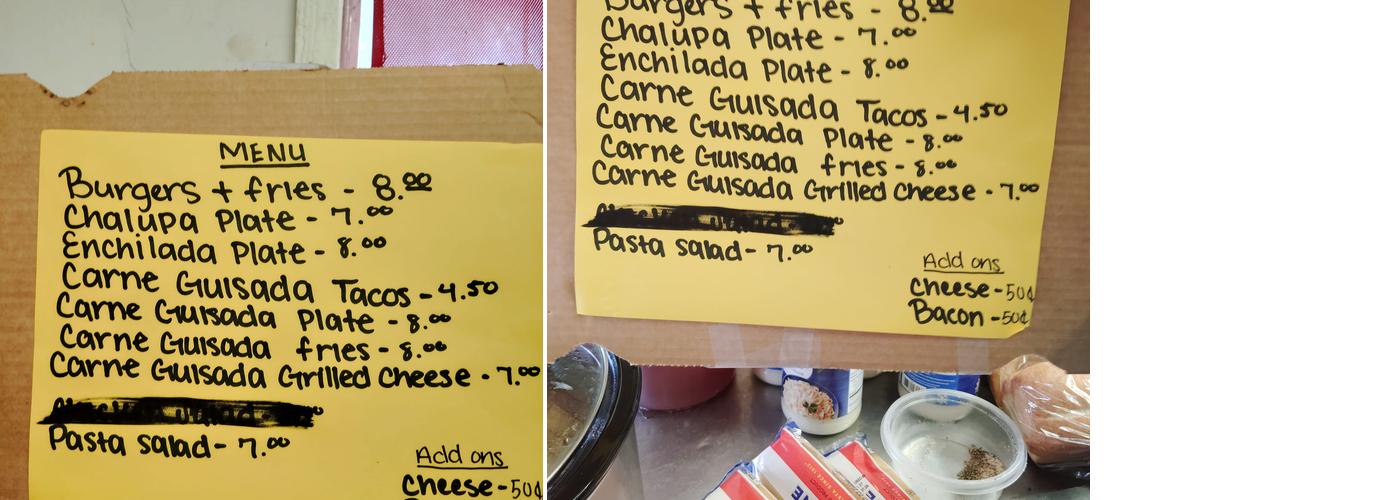 MENU
Burgers + fries - 8.00
Chalupa Plate - 7.00
Enchilada Plate - 8.00
Carne Guisada Tacos - 4.50
Carne Guisada Plate - 8.00
Carne Guisada fries - 8.00
Carne Guisada Grilled Cheese - 7.00
Pasta salad - 7.00
Add ons
Cheese - 50¢
Burgers + fries - 8.00
Chalupa Plate - 7.00
Enchilada Plate - 8.00
Carne Guisada Tacos - 4.50
Carne Guisada Plate - 8.00
Carne Guisada fries - 8.00
Carne Guisada Grilled Cheese - 7.00
Pasta salad - 7.00
Add ons
Cheese - 50¢
Bacon - 50¢